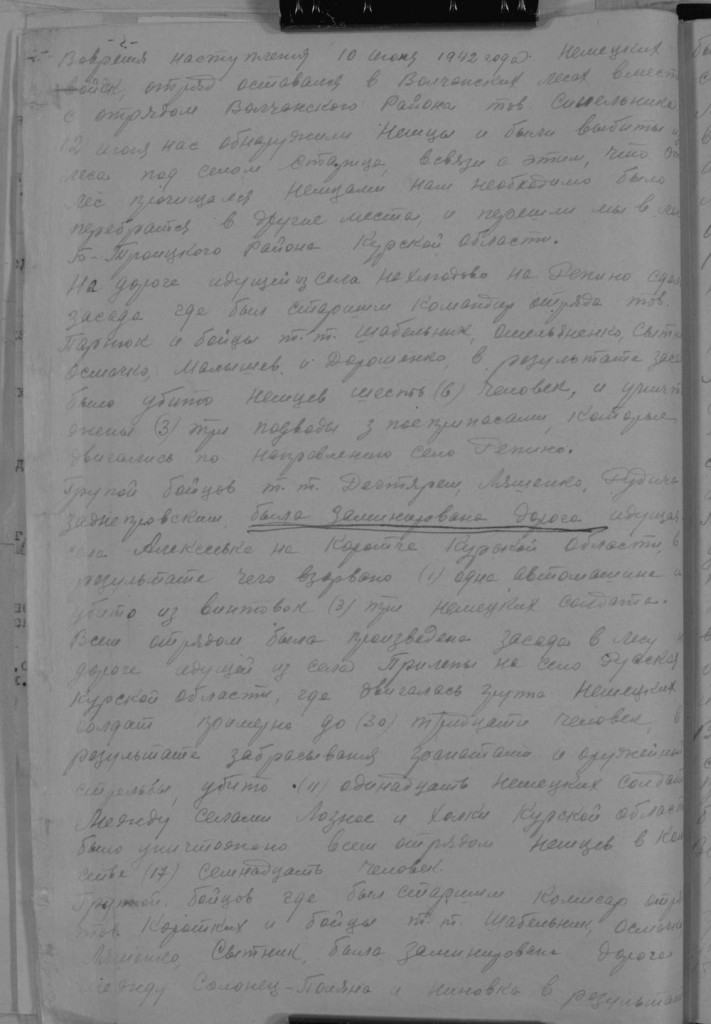 -2-
Вовремя наступления 10 июня 1942 года Немецких
войск, отряд оставался в Волчанских лесах вмест
с отрядом Волчанского Района тов. Синельника
12 июля нас обнаружили Немцы и были выбиты
леса под селом Старица, всвязи с этим, что
лес прочищался Немцами нам необходимо было
перебратся в другие места, и перешли мы в
Б-Троицкого Района Курской области.
На дороге идущей из села на Репино
засада где был старшим Командир отряда тов.
Парнюк и бойцы т.т. Шабельник, Омельяненко,
Осмачко, Малышев и Дорошенко, в результате
было убито немцев шесть (6) человек, и
(3) три подводы з поеприпасами, которые
двигались по направлению село Репино.
Групой бойцов т.т. Дегтярем, Ляшенко,
Заднепровским, была заминирована дорога идущая
села Алексеевка на Короча Курской области,
результате чего взорвано (1) одна автомашина и
убито из винтовок (3) три немецких солдата.
Всем отрядом была произведена засада в лесу
дороге идущей из села Прилепы на село
Курской области, где двигалась група Немецких
солдат примерно до (30) тридцати человек, в
результате забрасывания гранатами и
стрельбы, убито (11) одинадцать немецких
Между селами Лозное и Холки Курской
было уничтожено всем отрядом немцев в
стве (17) семнадцать человек.
Групой бойцов где был старшим Комисар
тов. Коротких и бойцы т.т. Шабельник,
Ляшенко, Сытник, была заминирована дорога
между Солонец-Поляна и в